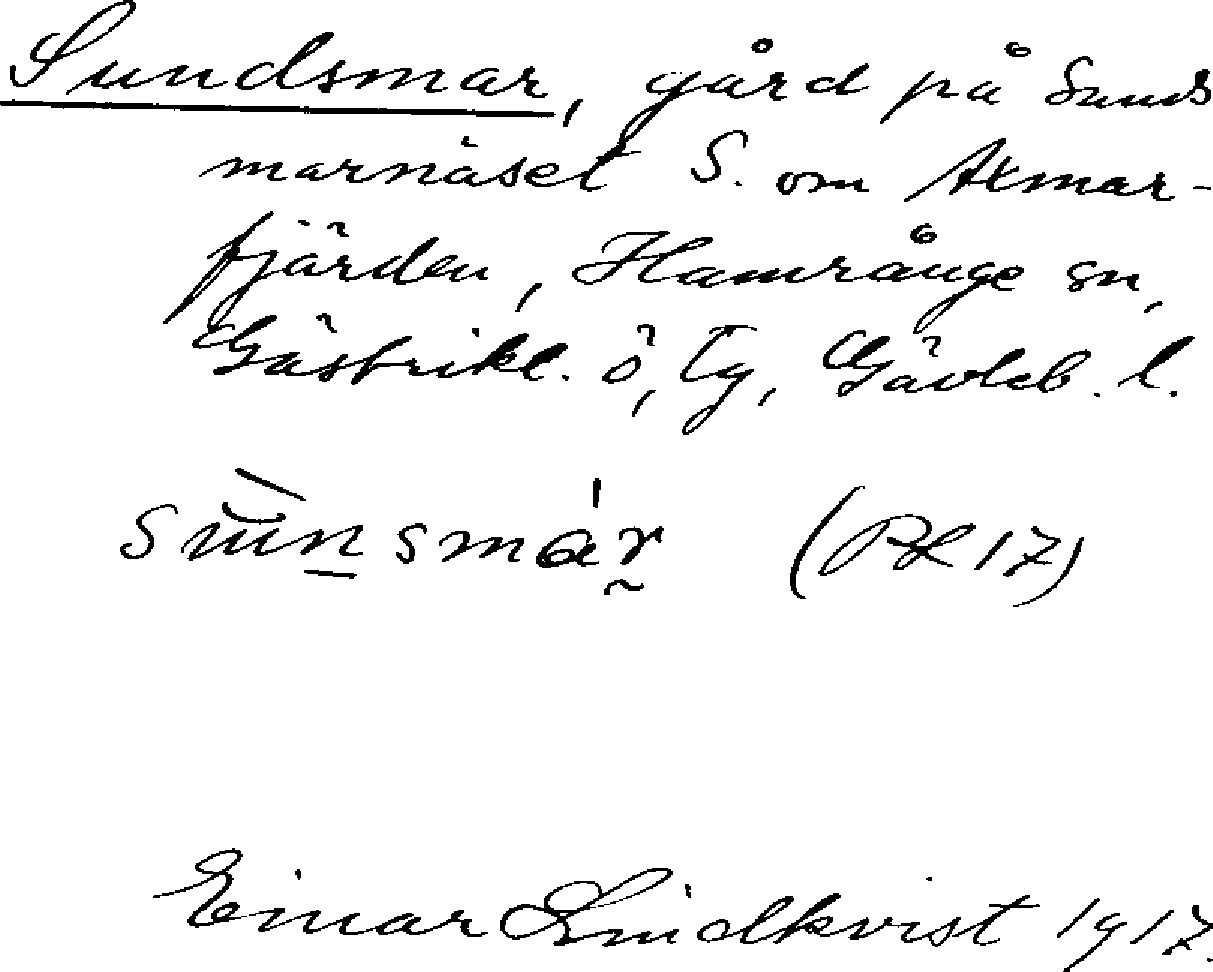 Sundsmar, gård på Sunds
marnäset S. om Axmar-
fjärden, Hamrånge sn,
Gästrikl. ö, tg, Gävleb. l.
sùnsmár (PX 17)
Einar Lindkvist 1917.